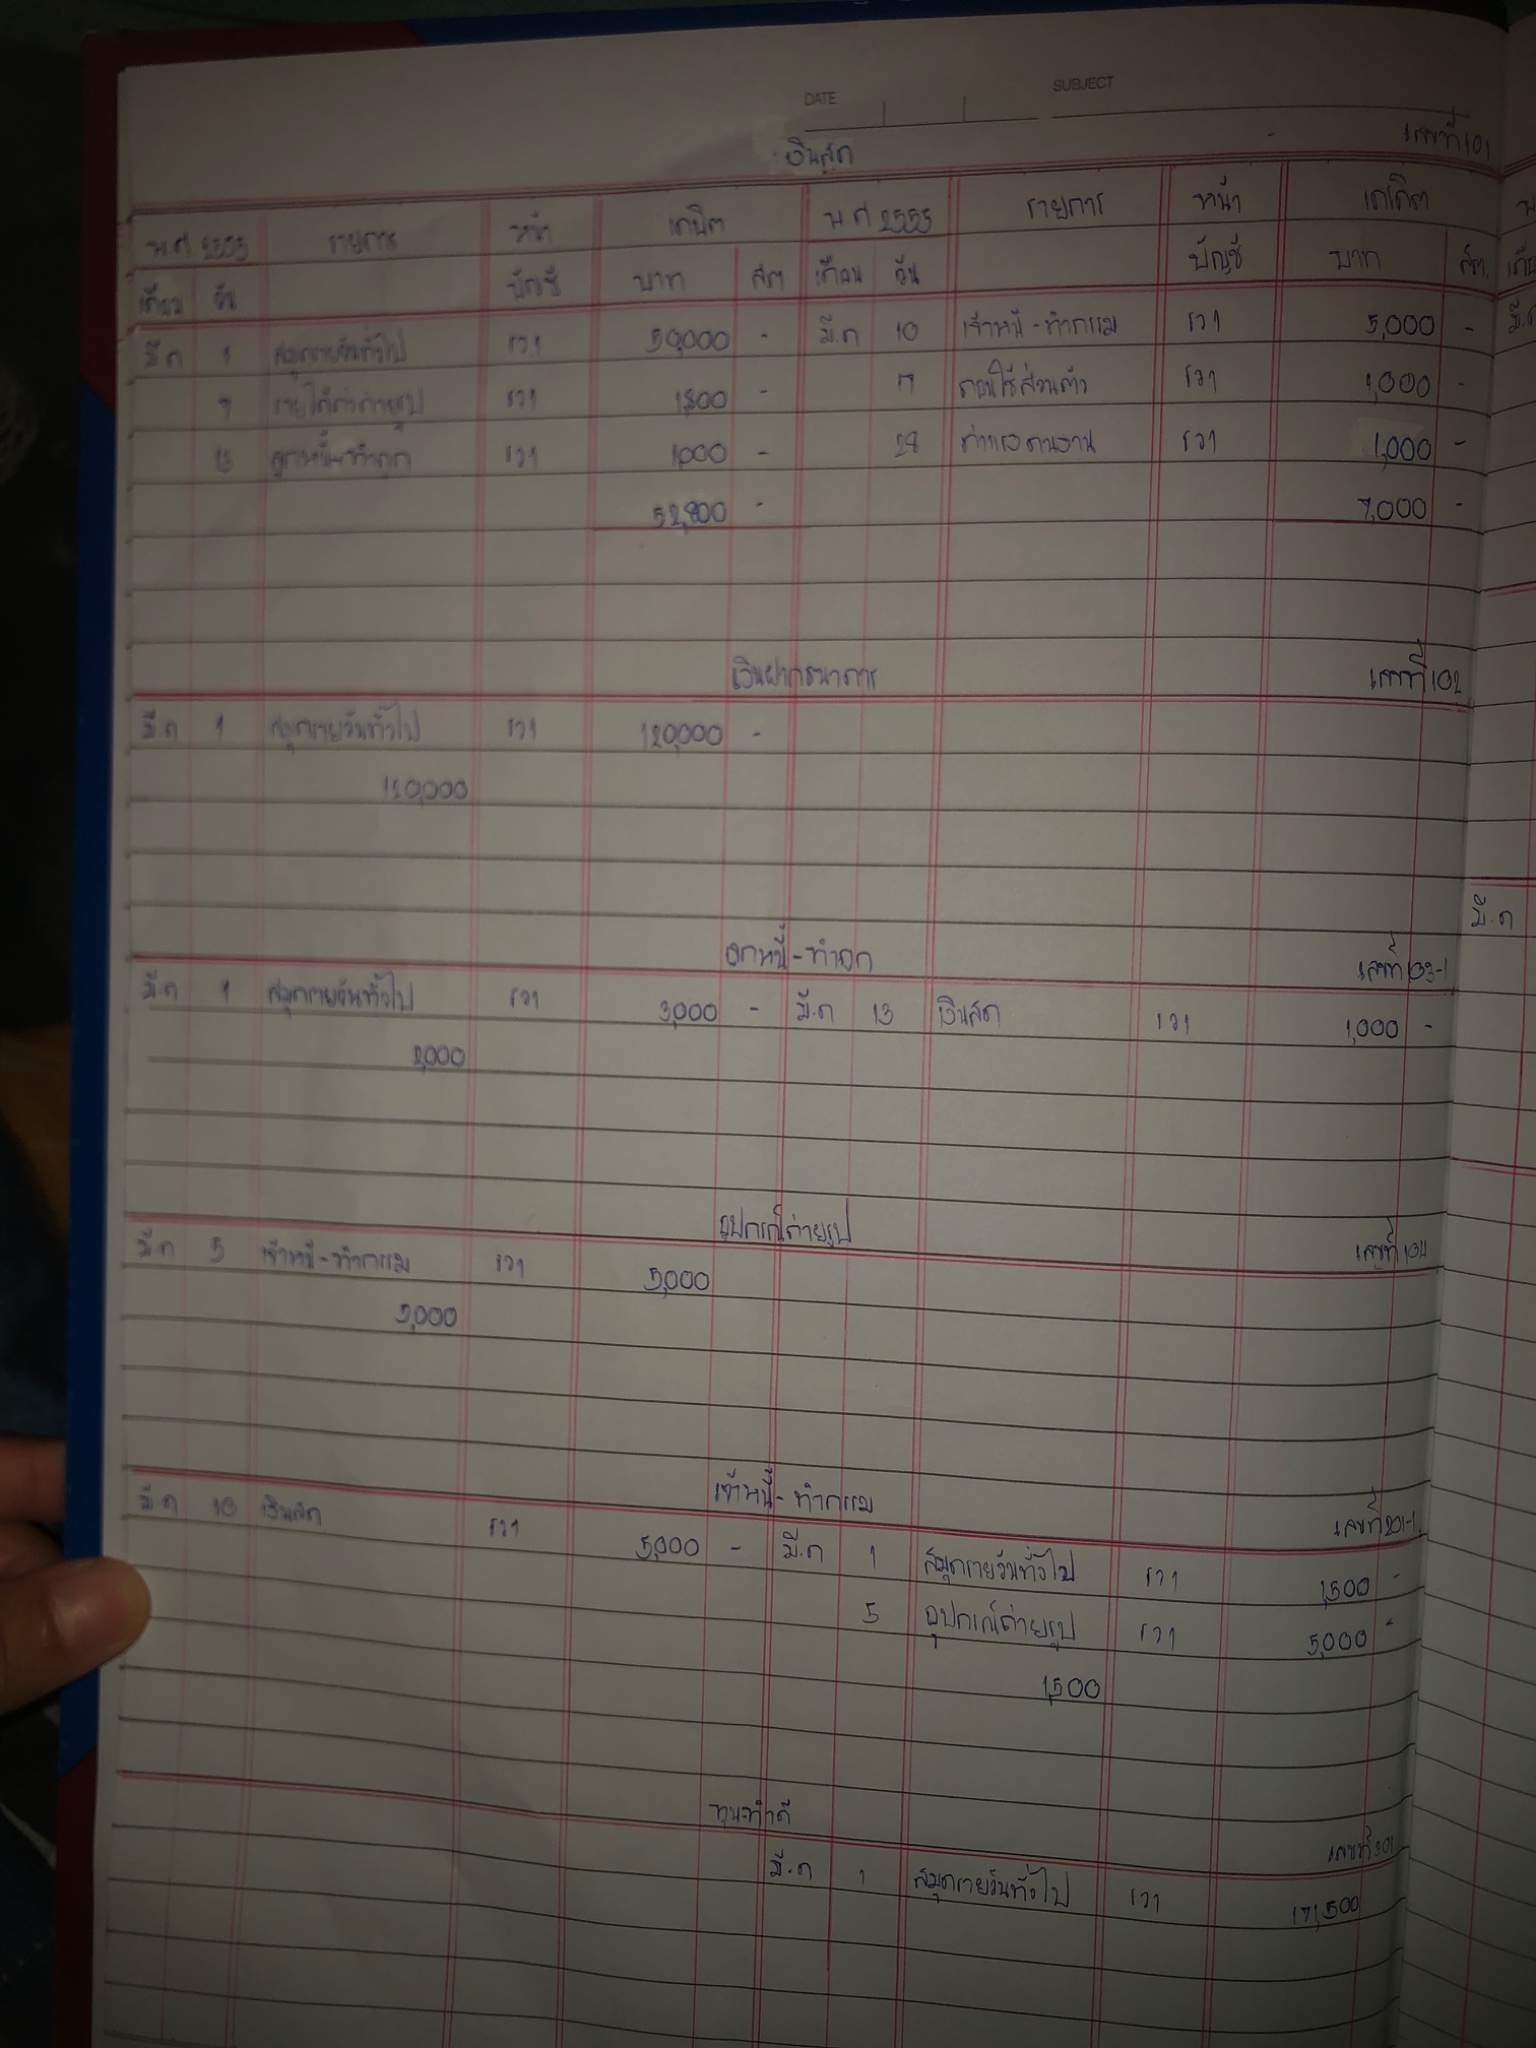 DATE SUBJECT
เงินสด เลขที่ 101
พ.ศ 2555 รายการ หน้า เดบิต พ.ศ 2555 รายการ หน้า เครดิต
เดือน วัน บัญชี บาท สต. เดือน วัน บัญชี บาท สต.
มี.ค 1 สมุดรายวันทั่วไป รว1 50,000 - มี.ค 10 เจ้าหนี้-ทำกรรม รว1 5,000 -
7 รายได้ค่าถ่ายรูป รว1 1,800 - 17 ถอนใช้ส่วนตัว รว1 1,000 -
13 ลูกหนี้-ทำถูก รว1 1,000 - 28 ค่าแรงคนงาน รว1 1,000 -
52,800 - 7,000 -
เงินฝากธนาคาร เลขที่ 102
มี.ค 1 สมุดรายวันทั่วไป รว1 120,000 -
120,000
ลูกหนี้-ทำถูก เลขที่ 103-1
มี.ค 1 สมุดรายวันทั่วไป รว1 3,000 - มี.ค 13 เงินสด รว1 1,000 -
2,000
อุปกรณ์ถ่ายรูป เลขที่ 104
มี.ค 5 เจ้าหนี้-ทำกรรม รว1 5,000
5,000
เจ้าหนี้-ทำกรรม เลขที่ 201-1
มี.ค 10 เงินสด รว1 5,000 - มี.ค 1 สมุดรายวันทั่วไป รว1 1,500 -
5 อุปกรณ์ถ่ายรูป รว1 5,000 -
1,500
ทุน-ทำดี เลขที่ 301
มี.ค 1 สมุดรายวันทั่วไป รว1 171,500
มี.ค